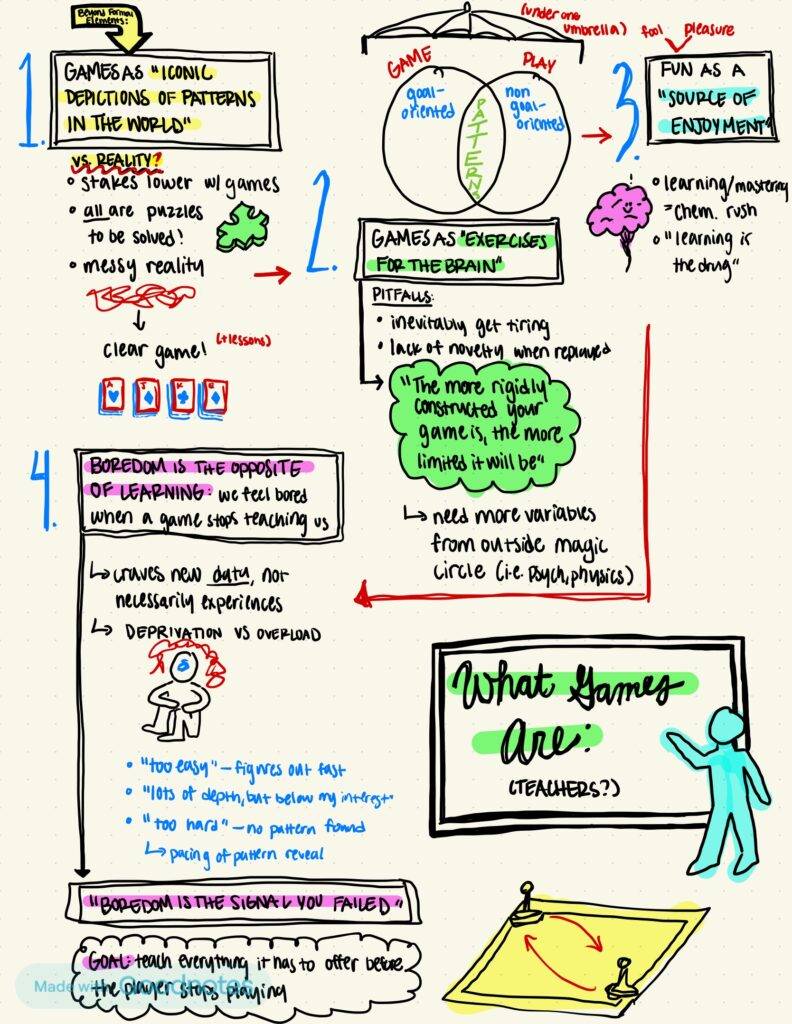 Beyond Formal
Elements:
1.
GAMES AS "ICONIC
DEPICTIONS OF PATTERNS
IN THE WORLD"
VS. REALITY?
• stakes lower w/ games
• all are puzzles
to be solved!
• messy reality
clear game! (+lessons)
A J K Q
(under one
umbrella)
GAME
PLAY
goal-
oriented
PATTERNS
non
goal-
oriented
2.
GAMES AS "EXERCISES
FOR THE BRAIN"
PITFALLS:
• inevitably get tiring
• lack of novelty when replayed
"The more rigidly
constructed your
game is, the more
limited it will be"
need more variables
from outside magic
circle (i.e. psych, physics)
fool pleasure
3.
FUN AS A
"SOURCE OF
ENJOYMENT"
• learning/mastering
= chem. rush
• "learning is
the drug"
4.
BOREDOM IS THE OPPOSITE
OF LEARNING: we feel bored
when a game stops teaching us
craves new data, not
necessarily experiences
DEPRIVATION VS OVERLOAD
• "too easy" – figures out fast
• "lots of depth, but below my interest"
• "too hard" – no pattern found
pacing of pattern reveal
"BOREDOM IS THE SIGNAL YOU FAILED"
GOAL: teach everything it has to offer before
the player stops playing
Made with Goodnotes
What Games
Are:
(TEACHERS?)